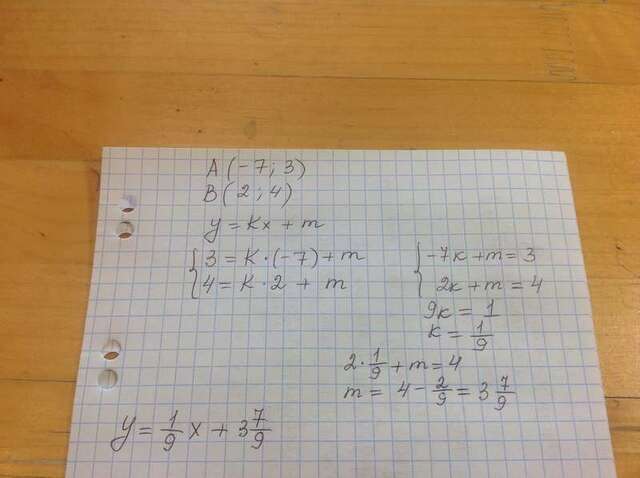 A (-7; 3)
B (2; 4)
y = kx + m
{ 3 = k·(-7) + m
4 = k·2 + m
{ -7k + m = 3
2k + m = 4
9k = 1
k = 1/9
2·1/9 + m = 4
m = 4 - 2/9 = 3 7/9
y = 1/9 x + 3 7/9